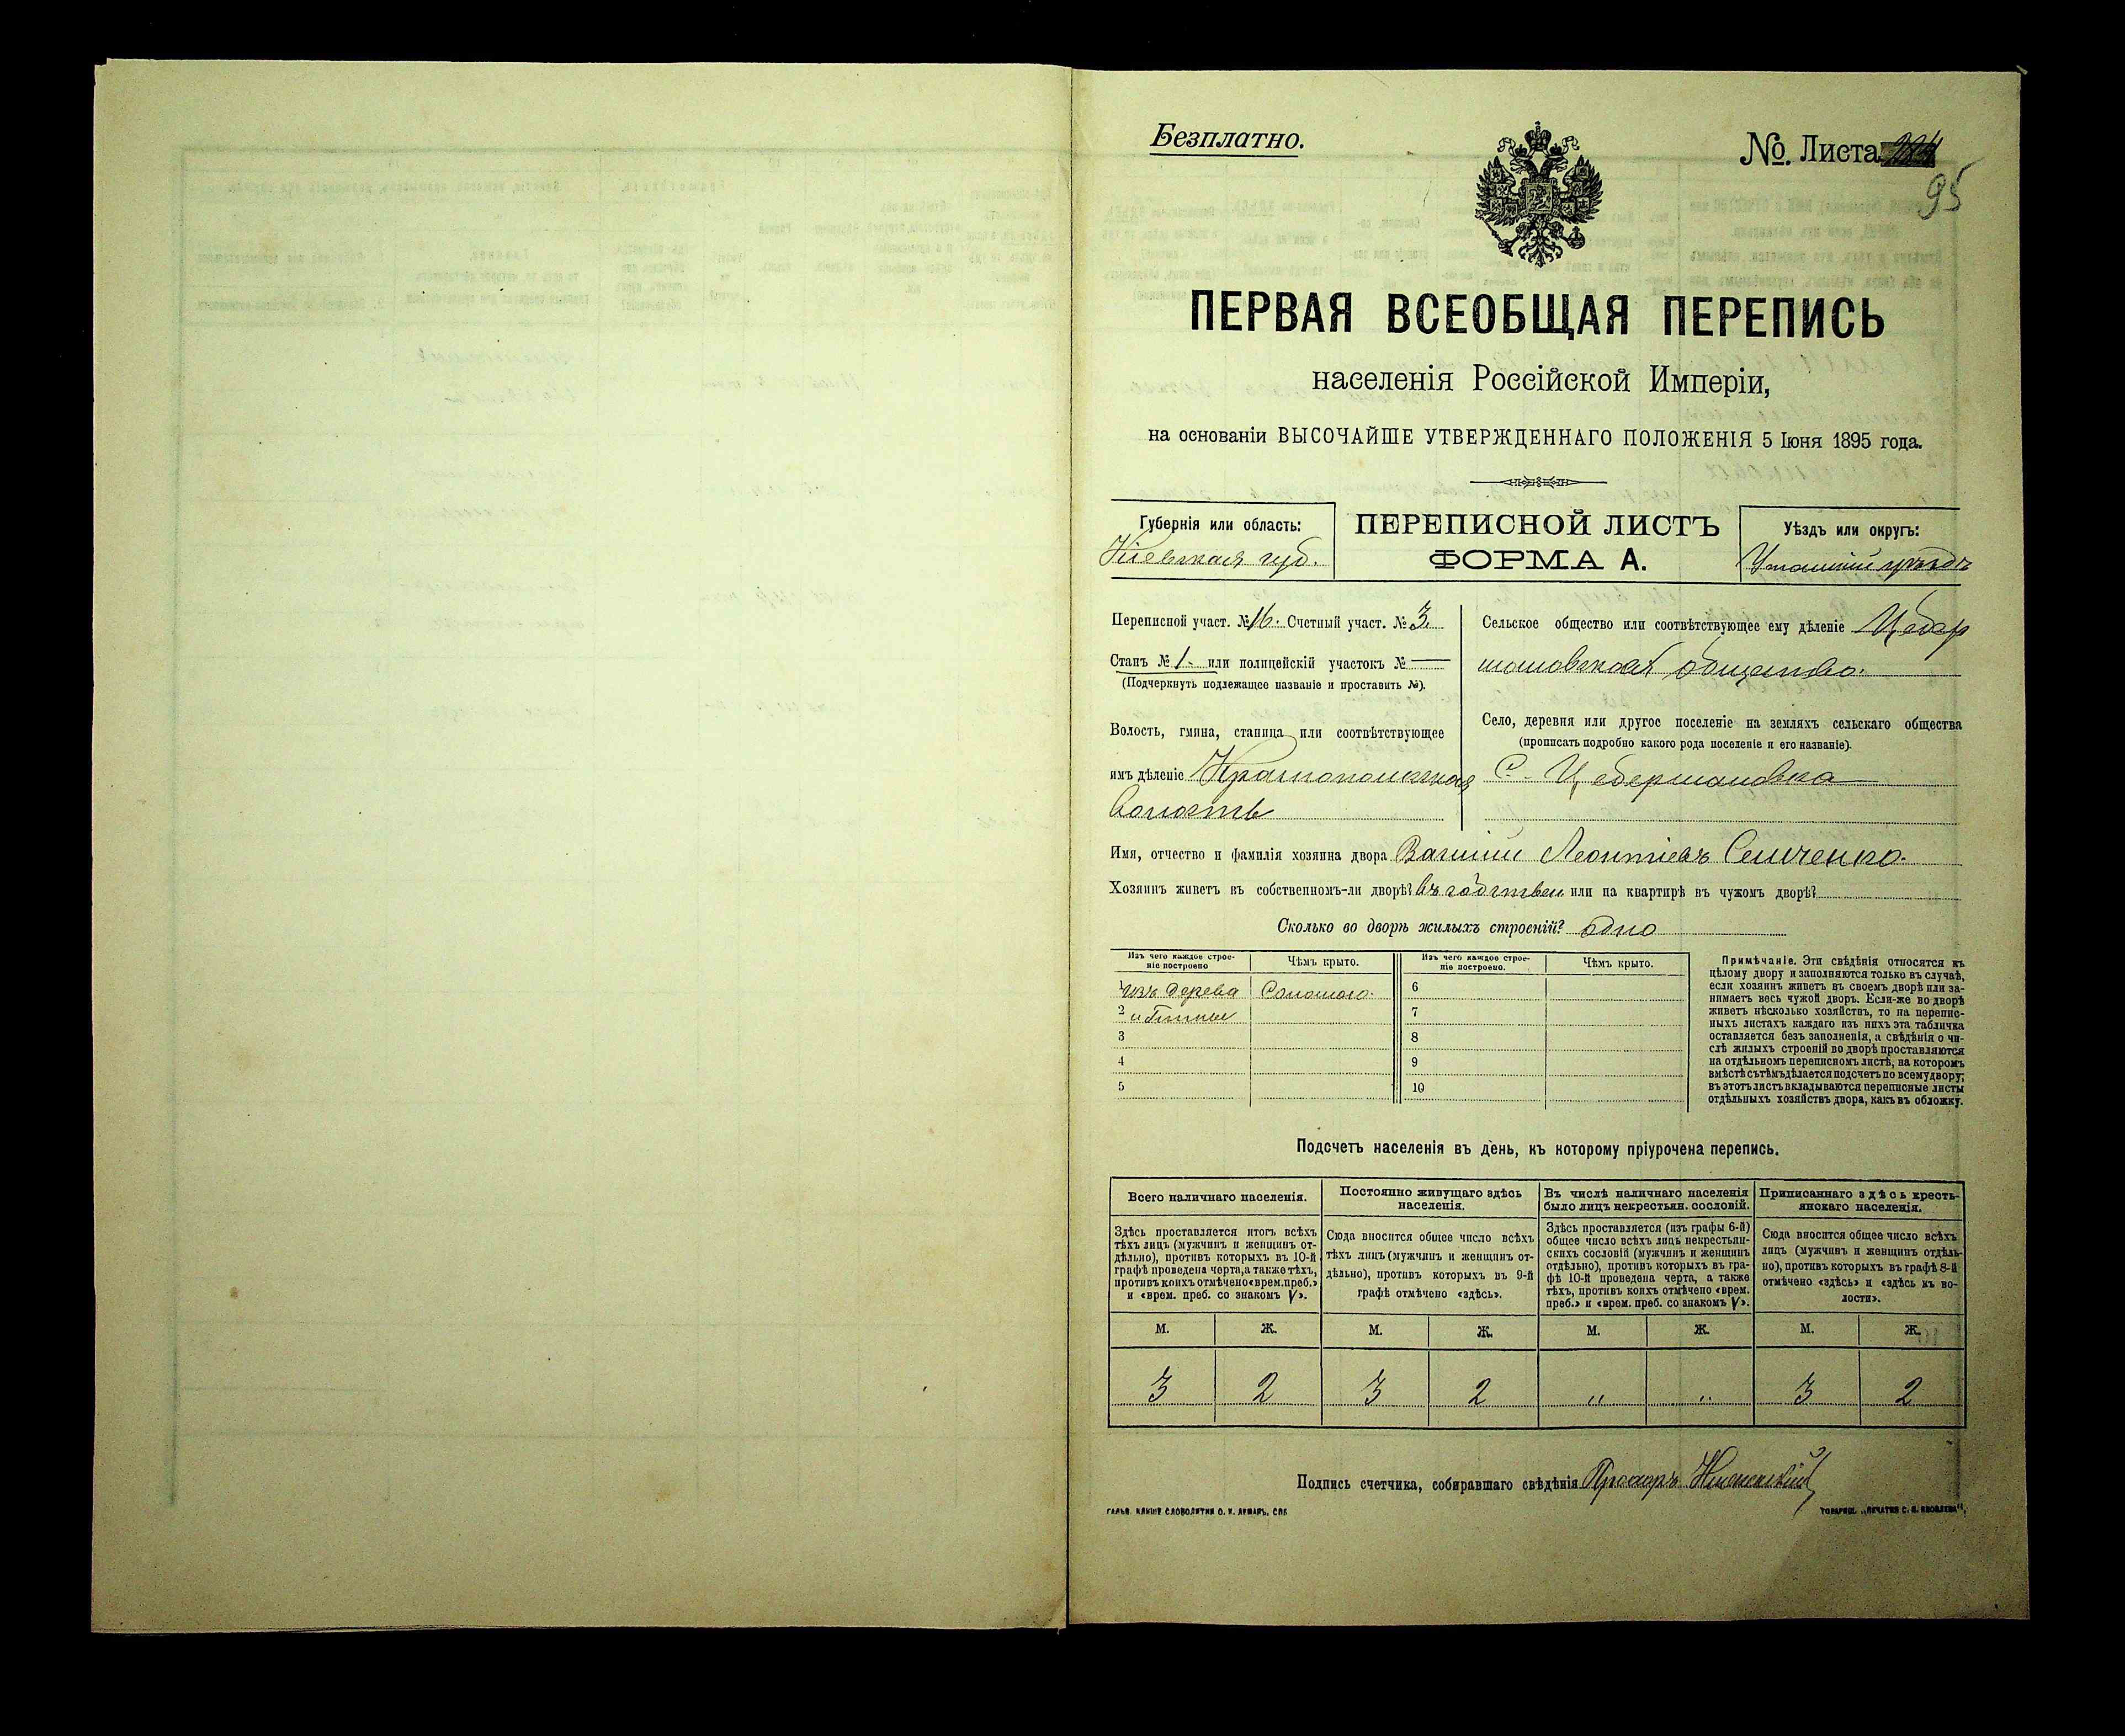 Безплатно.
№ Листа
95
ПЕРВАЯ ВСЕОБЩАЯ ПЕРЕПИСЬ
населенія Россійской Имперіи,
на основаніи ВЫСОЧАЙШЕ УТВЕРЖДЕННАГО ПОЛОЖЕНІЯ 5 Іюня 1895 года.
Губернія или область:
Кіевская губ.
ПЕРЕПИСНОЙ ЛИСТЪ
ФОРМА А.
Уѣздъ или округъ:
Уманскій уѣздъ
Переписной участ. № 16. Счетный участ. № 3
Станъ № 1. или полицейскій участокъ № —
(Подчеркнуть подлежащее названіе и проставить №).
Волость, гмина, станица или соотвѣтствующее
имъ дѣленіе Краснопольская
волость
Сельское общество или соотвѣтствующее ему дѣленіе Цебер
мановское общество.
Село, деревня или другое поселеніе на земляхъ сельскаго общества
(прописать подробно какого рода поселеніе и его названіе).
С. Цебермановка
Имя, отчество и фамилія хозяина двора Василій Леонтіевъ Семченко.
Хозяинъ живетъ въ собственномъ-ли дворѣ? въ собствен или на квартирѣ въ чужомъ дворѣ?
Сколько во дворѣ жилыхъ строеній? одно
Изъ чего каждое строе-
ніе построено
Чѣмъ крыто.
Изъ чего каждое строе-
ніе построено.
Чѣмъ крыто.
1 изъ дерева Соломою. 6
2 и глины 7
3 8
4 9
5 10
Примѣчаніе. Эти свѣдѣнія относятся къ
цѣлому двору и заполняются только въ случаѣ,
если хозяинъ живетъ въ своемъ дворѣ или за-
нимаетъ весь чужой дворъ. Если-же во дворѣ
живетъ нѣсколько хозяйствъ, то на перепис-
ныхъ листахъ каждаго изъ нихъ эта табличка
оставляется безъ заполненія, а свѣдѣнія о чи-
слѣ жилыхъ строеній во дворѣ проставляются
на отдѣльномъ переписномъ листѣ, на которомъ
вмѣстѣ съ тѣмъ дѣлается подсчетъ по всему двору;
въ этотъ листъ вкладываются переписные листы
отдѣльныхъ хозяйствъ двора, какъ въ обложку.
Подсчетъ населенія въ день, къ которому пріурочена перепись.
Всего наличнаго населенія.
Здѣсь проставляется итогъ всѣхъ
тѣхъ лицъ (мужчинъ и женщинъ от-
дѣльно), противъ которыхъ въ 10-й
графѣ проведена черта, а также тѣхъ,
противъ коихъ отмѣчено «врем. преб.»
и «врем. преб. со знакомъ V».
Постоянно живущаго здѣсь
населенія.
Сюда вносится общее число всѣхъ
тѣхъ лицъ (мужчинъ и женщинъ от-
дѣльно), противъ которыхъ въ 9-й
графѣ отмѣчено «здѣсь».
Въ числѣ наличнаго населенія
было лицъ некрестьян. сословій.
Здѣсь проставляется (изъ графы 6-й)
общее число всѣхъ лицъ некрестьян-
скихъ сословій (мужчинъ и женщинъ
отдѣльно), противъ которыхъ въ гра-
фѣ 10-й проведена черта, а также
тѣхъ, противъ коихъ отмѣчено «врем.
преб.» и «врем. преб. со знакомъ V».
Приписаннаго здѣсь кресть-
янскаго населенія.
Сюда вносится общее число всѣхъ
лицъ (мужчинъ и женщинъ отдѣль-
но), противъ которыхъ въ графѣ 8-й
отмѣчено «здѣсь» и «здѣсь къ во-
лости».
М. Ж. М. Ж. М. Ж. М. Ж.
3 2 3 2 „ „ 3 2
Подпись счетчика, собиравшаго свѣдѣнія
ГАЛЬВ. КЛИШЕ СЛОВОЛИТНИ О. И. ЛЕМАНЪ, СПБ
ТОВАРИЩ. „ПЕЧАТНЯ С. П. ЯКОВЛЕВА",